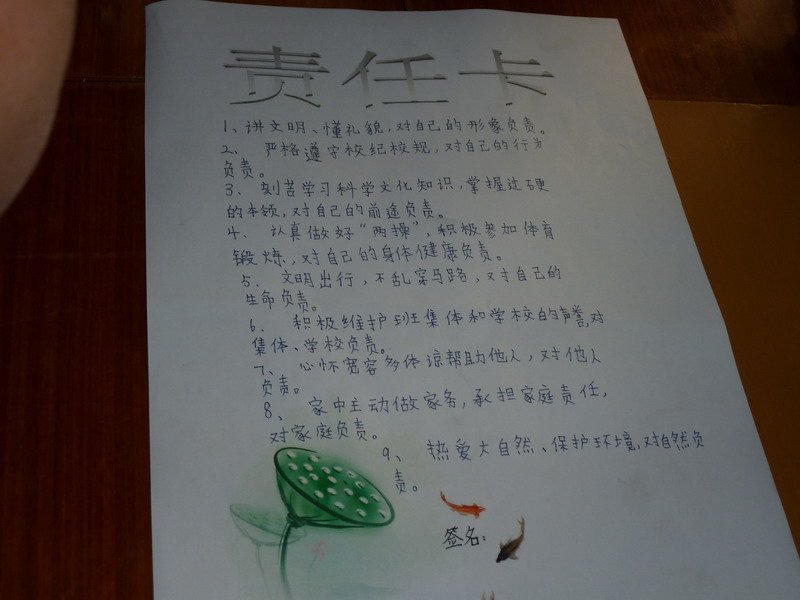 责任卡
1、讲文明、懂礼貌,对自己的形象负责。
2、 严格遵守校纪校规,对自己的行为
负责。
3、 刻苦学习科学文化知识,掌握过硬
的本领,对自己的前途负责。
4、 认真做好“两操”,积极参加体育
锻炼,对自己的身体健康负责。
5、 文明出行,不乱穿马路,对自己的
生命负责。
6、 积极维护班集体和学校的声誉,对
集体、学校负责。
7、 心怀宽容多体谅帮助他人,对他人
负责。
8、 家中主动做家务,承担家庭责任,
对家庭负责。
9、 热爱大自然、保护环境,对自然负
责。
签名: